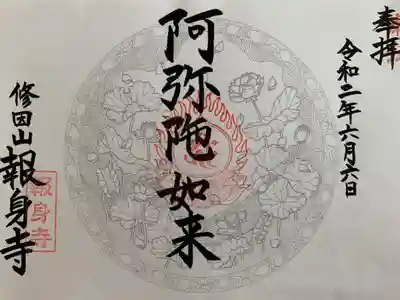 奉拝
令和二年六月六日
阿弥陀如来
修因山
報身寺
報身寺